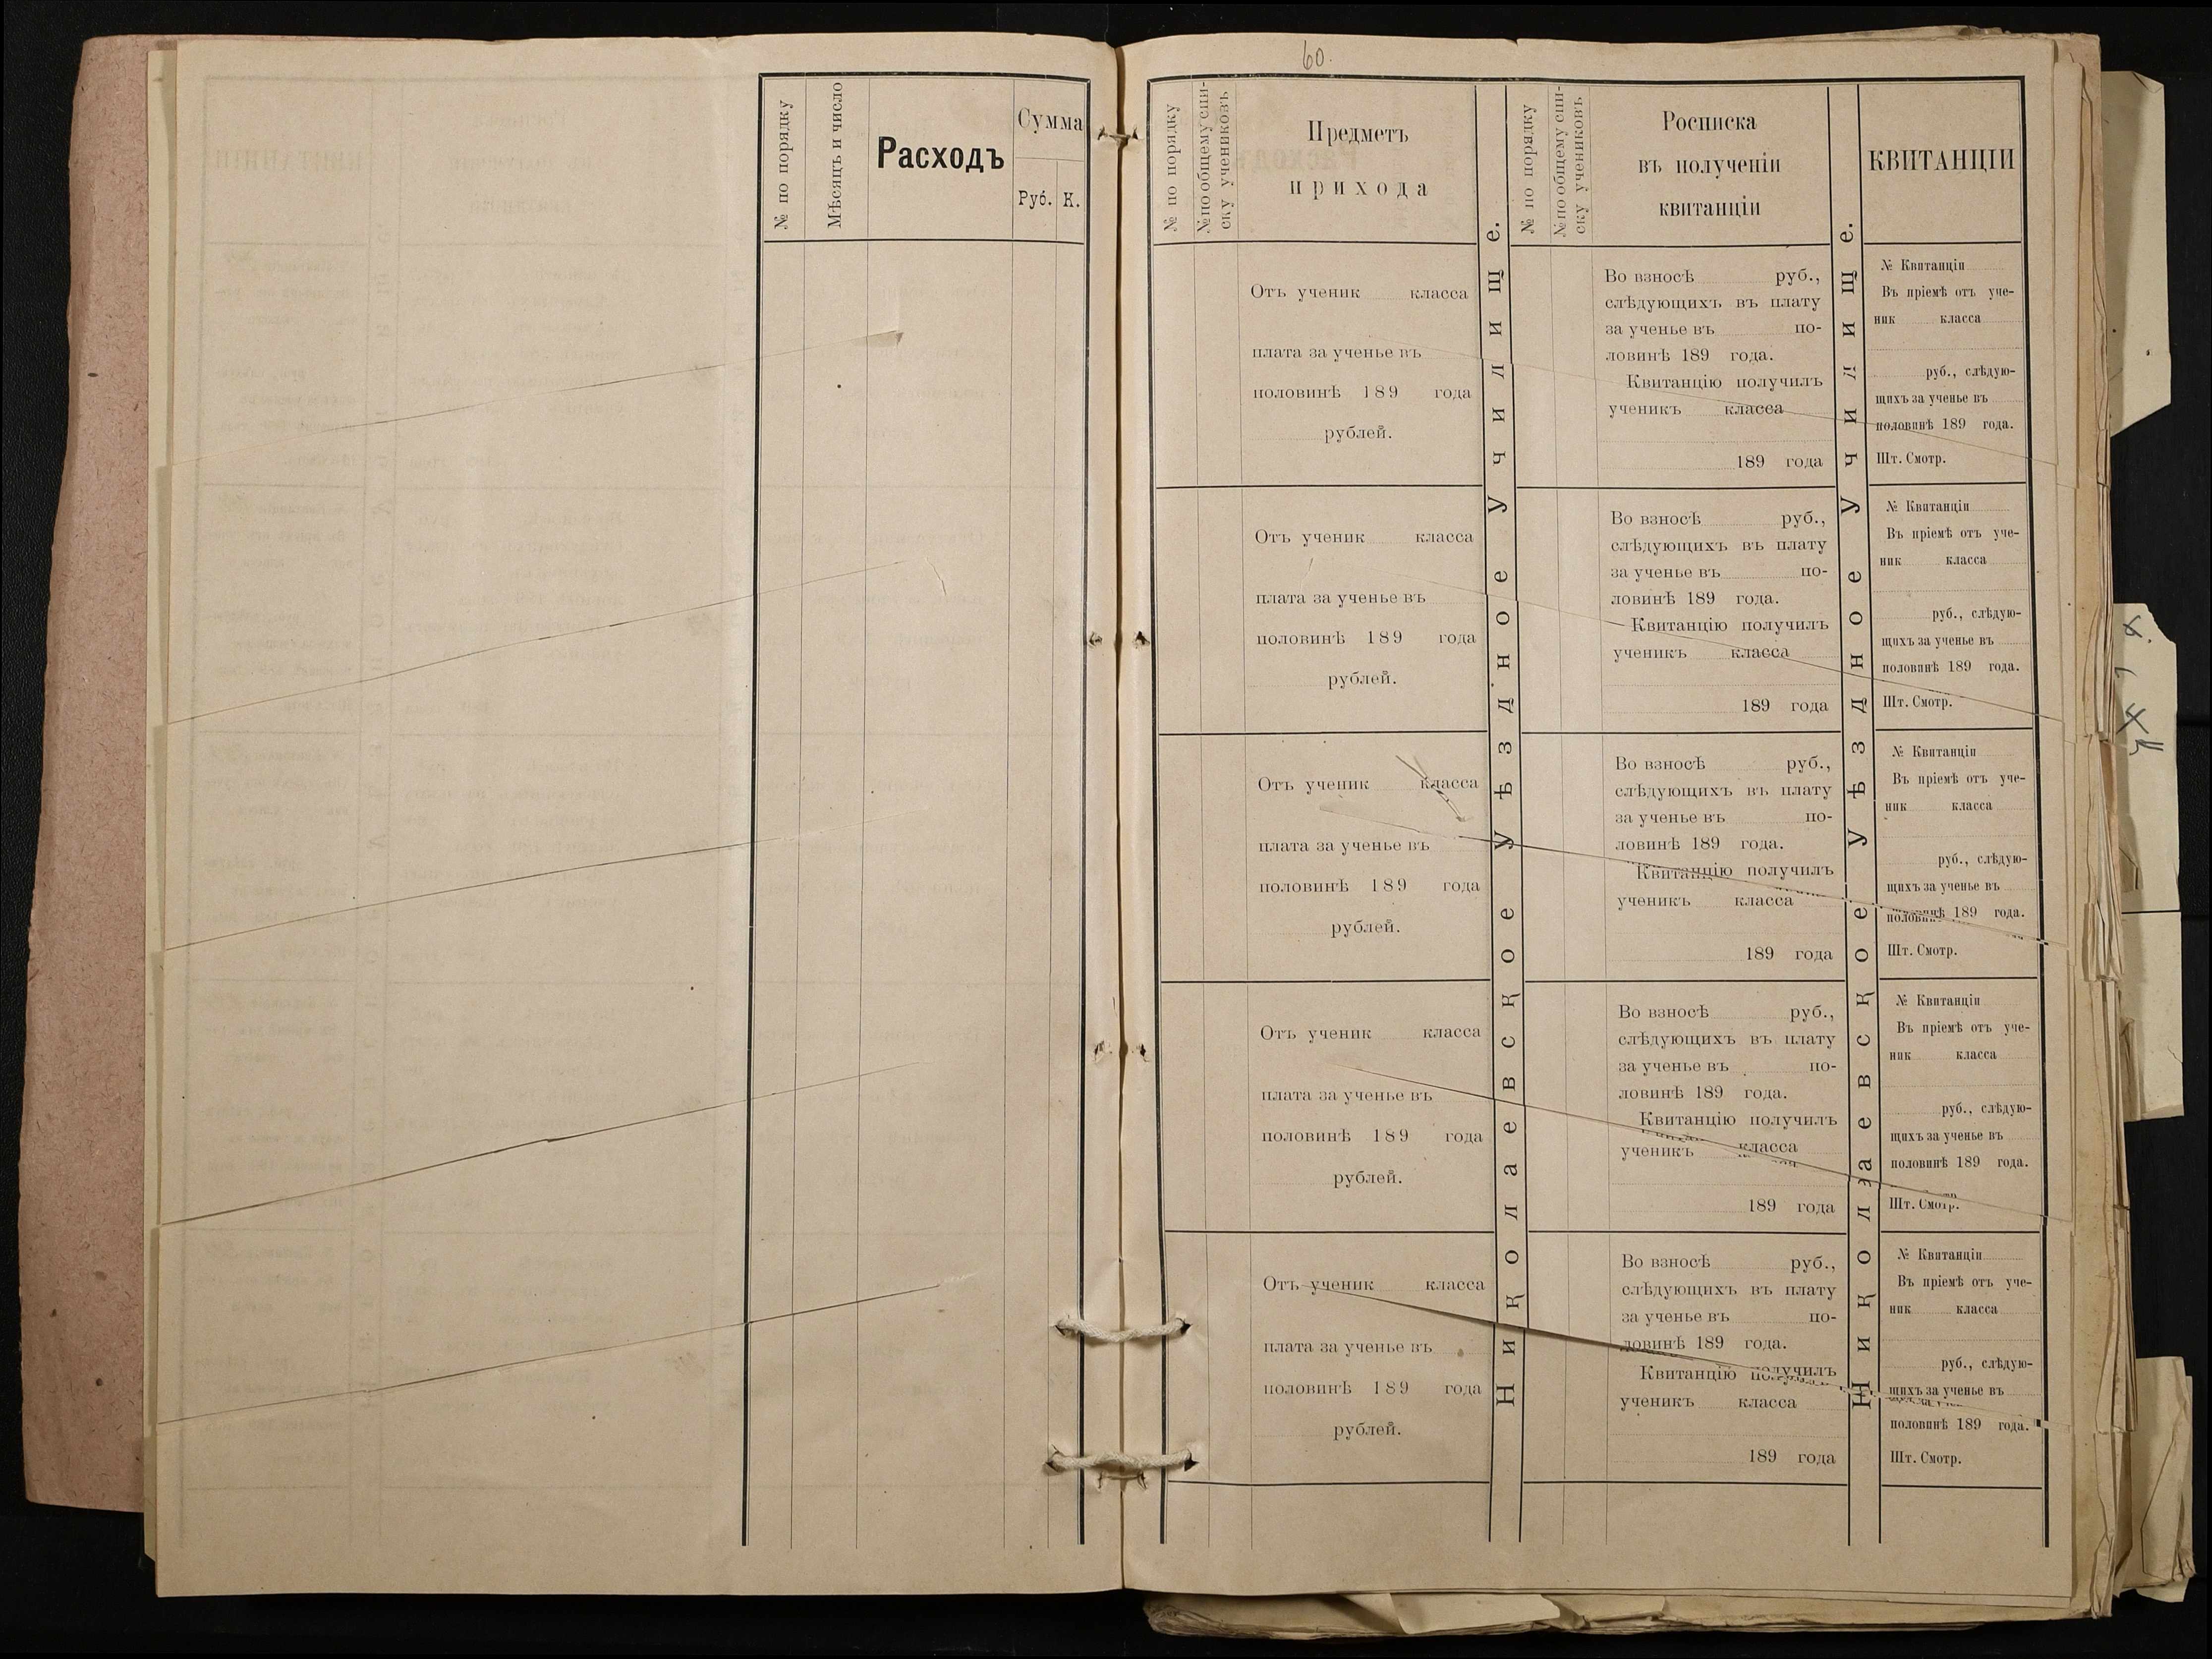 № по порядку
Мѣсяцъ и число
Расходъ
Сумма
Руб. К.
60.
№ по порядку
№ по общему спи-
ску учениковъ
Предметъ
прихода
№ по порядку
№ по общему спи-
ску учениковъ
Росписка
въ полученіи
квитанціи
КВИТАНЦІИ
Николаевское Уѣздное Училище.
Николаевское Уѣздное Училище.
Отъ ученик класса
плата за ученье въ
половинѣ 189 года
рублей.
Во взносѣ руб.,
слѣдующихъ въ плату
за ученье въ по-
ловинѣ 189 года.
Квитанцію получилъ
ученикъ класса
189 года
№ Квитанціи
Въ пріемѣ отъ уче-
ник класса
руб., слѣдую-
щихъ за ученье въ
половинѣ 189 года.
Шт. Смотр.
Отъ ученик класса
плата за ученье въ
половинѣ 189 года
рублей.
Во взносѣ руб.,
слѣдующихъ въ плату
за ученье въ по-
ловинѣ 189 года.
Квитанцію получилъ
ученикъ класса
189 года
№ Квитанціи
Въ пріемѣ отъ уче-
ник класса
руб., слѣдую-
щихъ за ученье въ
половинѣ 189 года.
Шт. Смотр.
Отъ ученик класса
плата за ученье въ
половинѣ 189 года
рублей.
Во взносѣ руб.,
слѣдующихъ въ плату
за ученье въ по-
ловинѣ 189 года.
Квитанцію получилъ
ученикъ класса
189 года
№ Квитанціи
Въ пріемѣ отъ уче-
ник класса
руб., слѣдую-
щихъ за ученье въ
половинѣ 189 года.
Шт. Смотр.
Отъ ученик класса
плата за ученье въ
половинѣ 189 года
рублей.
Во взносѣ руб.,
слѣдующихъ въ плату
за ученье въ по-
ловинѣ 189 года.
Квитанцію получилъ
ученикъ класса
189 года
№ Квитанціи
Въ пріемѣ отъ уче-
ник класса
руб., слѣдую-
щихъ за ученье въ
половинѣ 189 года.
Шт. Смотр.
Отъ ученик класса
плата за ученье въ
половинѣ 189 года
рублей.
Во взносѣ руб.,
слѣдующихъ въ плату
за ученье въ по-
ловинѣ 189 года.
Квитанцію получилъ
ученикъ класса
189 года
№ Квитанціи
Въ пріемѣ отъ уче-
ник класса
руб., слѣдую-
щихъ за ученье въ
половинѣ 189 года.
Шт. Смотр.